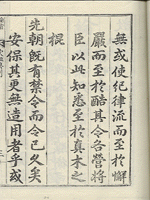 無或使紀律流而至於懈
嚴而至於酷其令各營將
臣以此知悉至於真木之
棍
先朝既有禁令而令已久矣
安保其更無造用者乎或